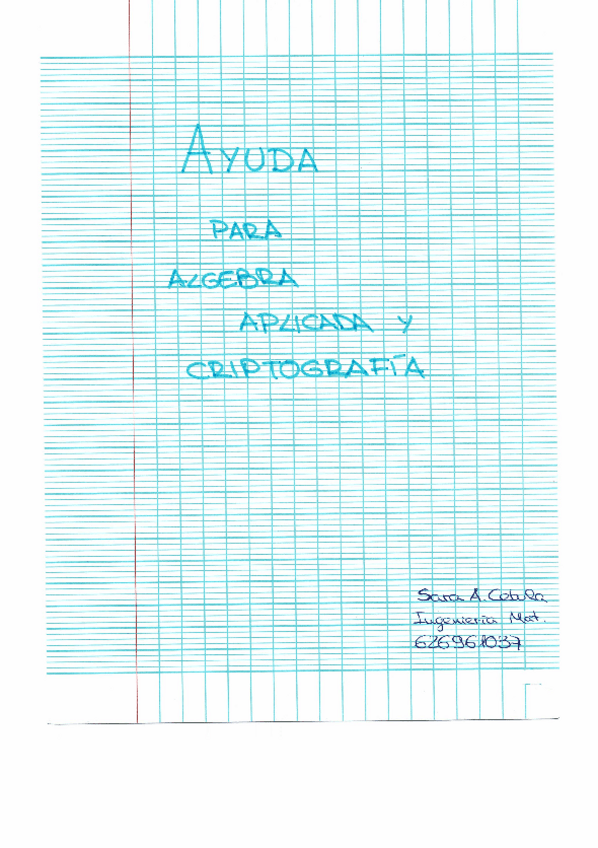 AYUDA
PARA
ALGEBRA
APLICADA Y
CRIPTOGRAFÍA
Sara A.
Ingeniería Mat.
626961037